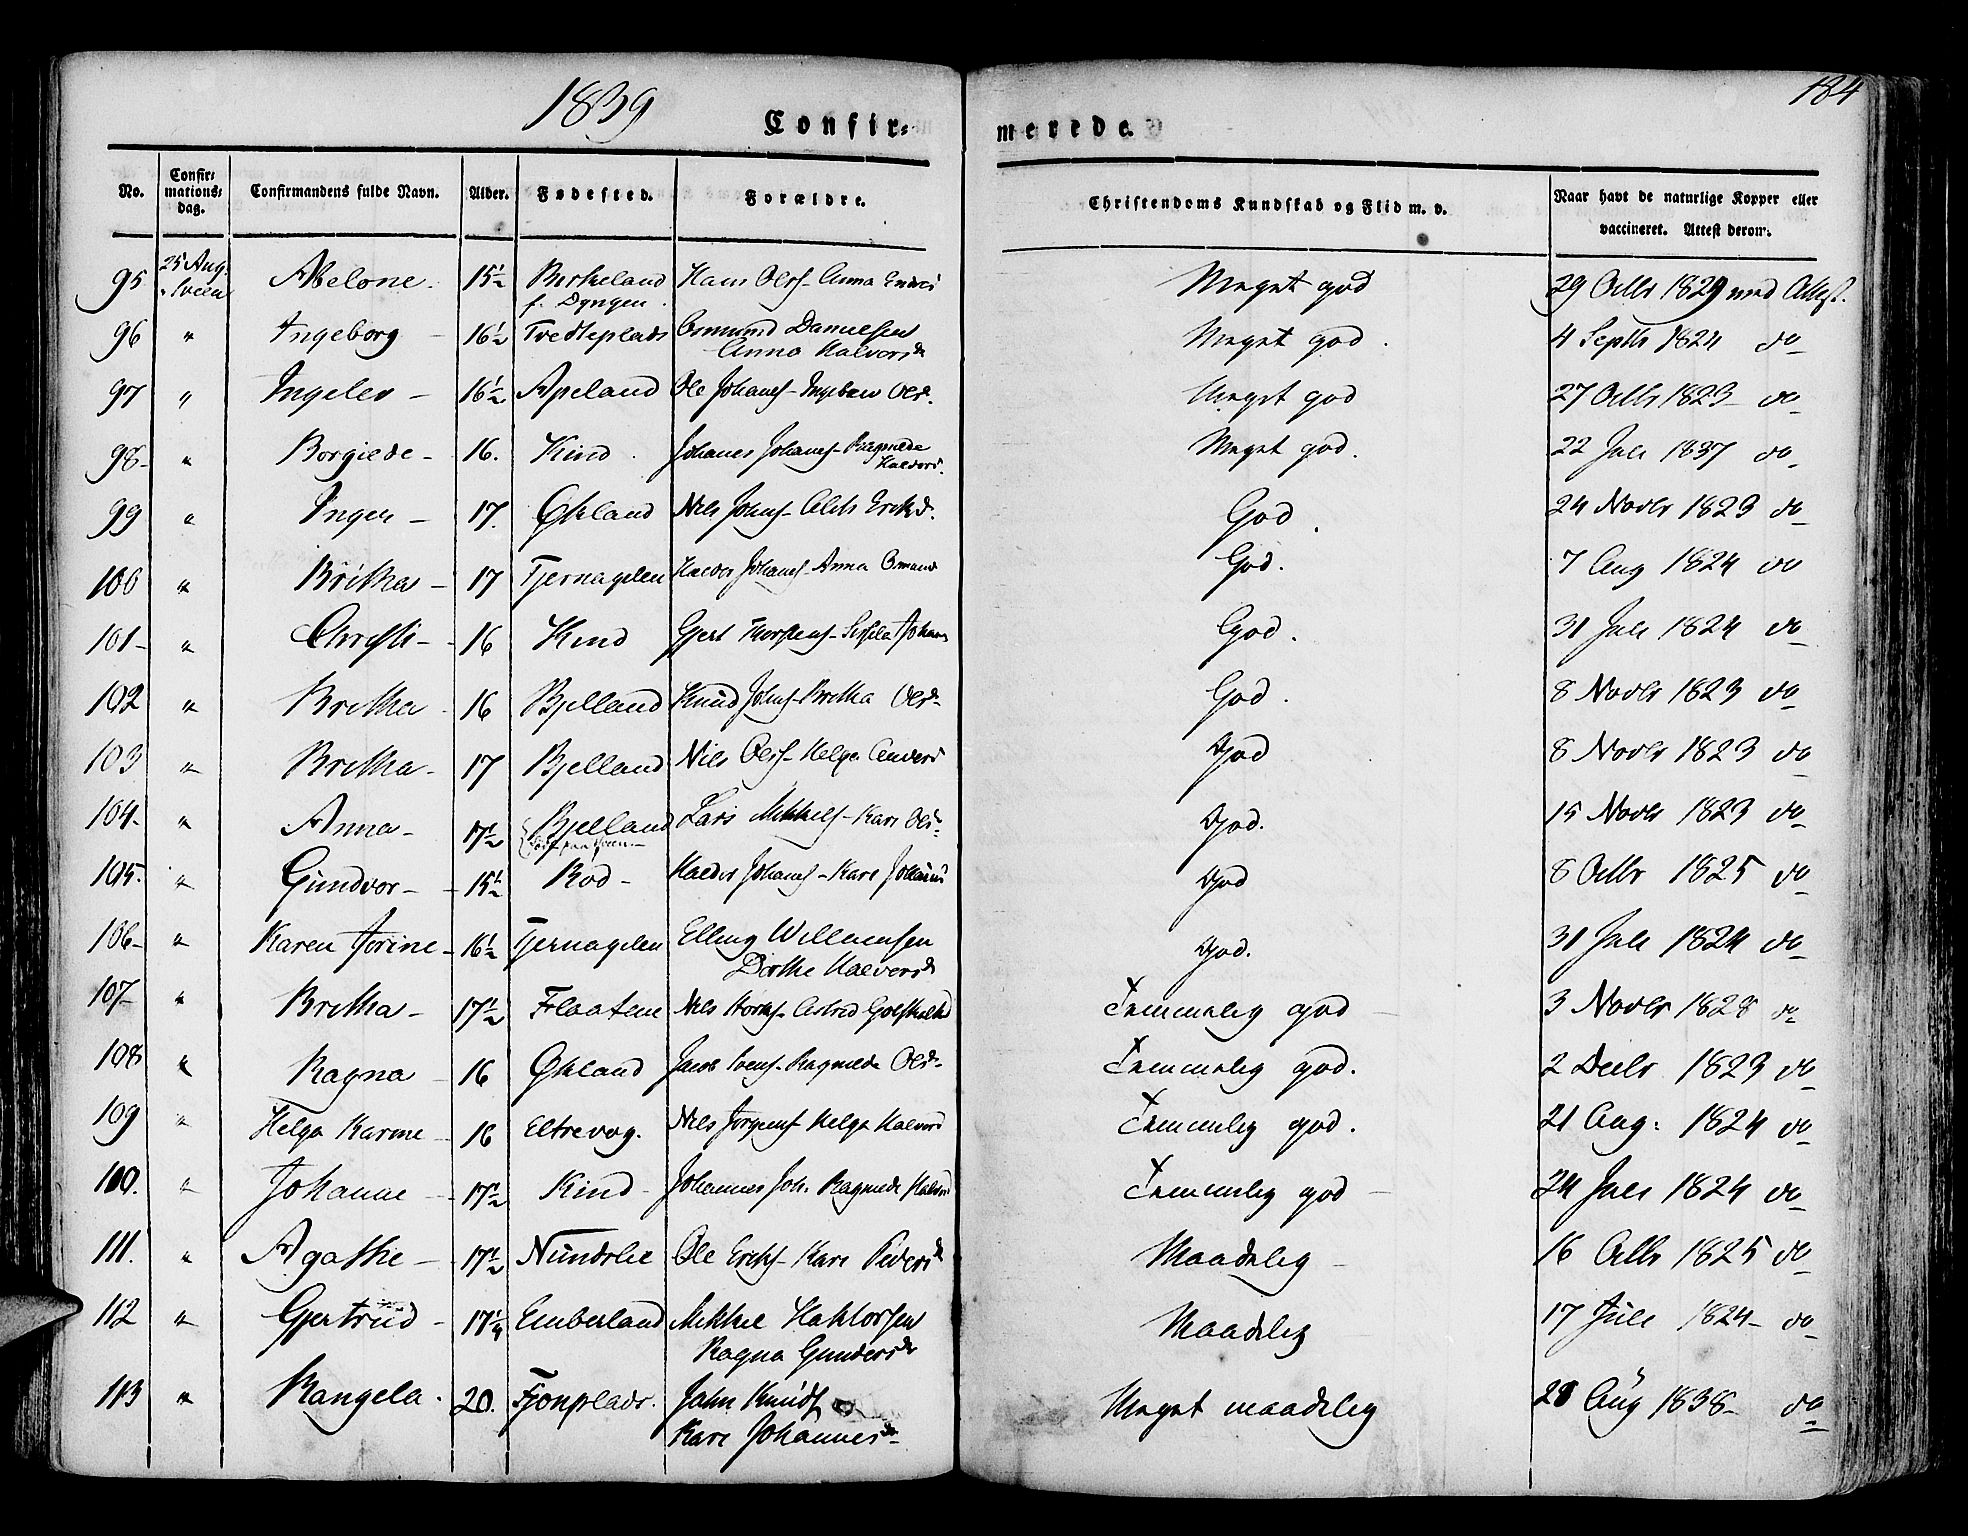 1839
184
Confir= merede.
No. Confir= mations= dag. Confirmandens fulde Navn. Alder. Fødested. Forældre. Christendoms Kundskab og Flid m. v. Naar havt de naturlige Kopper eller vaccineret. Attest derom.
95 25 Aug. Sveen Abelone 15½ Birkeland f. Dyngen Hans Olss - Anna Meget god 29 Octbr 1829 med Attest.
96 " Ingeborg 16½ Tvedteplads Osmund Danielsen Meget god 4 Septbr 1824 do
Anna Halvorsdr
97 " Ingelev 16½ Apeland Ole Johans - Olsd. Meget god 27 Octbr 1823 do
98 " Borgilde 16. Kind Johanes Johans - Ragnilde Halvors. Meget god. 22 Juli 1837 do
99 " Inger 17. Økland Nils Johns - Ericksd. God. 24 Novbr 1823 do
100 " Britha 17 Tjernagelen Halvor Johans - Anna God. 7 Aug 1824 do
101 " Christi 16 Kind Gjert Thorstens - Johans God. 31 Juli 1824 do
102 " Britha 16 Bjelland Knud Johns - Britha Olsdr God. 8 Novbr 1823 do
103 " Britha 17 Bjelland Nils Olss - Helga Anders God 8 Novbr 1823 do
104. " Anna 17½ Bjelland Lars Mikkels - Kari Olsdr God. 15 Novbr 1823 do
105. " Gundvor 15½ Rod Haldor Johans - Kari Johanns God 8 Octbr 1825 do
106 " Karen Jorine 16½ Tjernagelen Elling Willumsen God. 31 Juli 1824 do
Dorthe Halvorsdr
107 " Britha 17½ Flaatene Nils - Astrid Temmelig god 3 Novbr 1828 do
108 " Ragna 16 Økland Jacob Svens - Ragnilde Olsdr Temmelig god. 2 Decbr 1823 do
109 " Helga Karine 16 Eltrevog. Nils Jørgens Helga Halvors Temmelig god. 21 Aug: 1824 do
110. " Johanne 17½ Kind Johannes Joh. Ragnilde Halvors Temmelig god 24 Juli 1824 do
111. " Agathe 17½ Nundslie Ole Ericks - Kari Pedersdr Maadelig 16 Octbr 1825 do
112 " Gjertrud 17¼ Emberland Mikkel Haktorsen Maadelig 17 Juli 1824 do
Ragna Gundersdr
113 " Rangela 20. Fjonplads. John Knuds Meget maadelig 28 Aug 1838 do
Kari Johannesdr